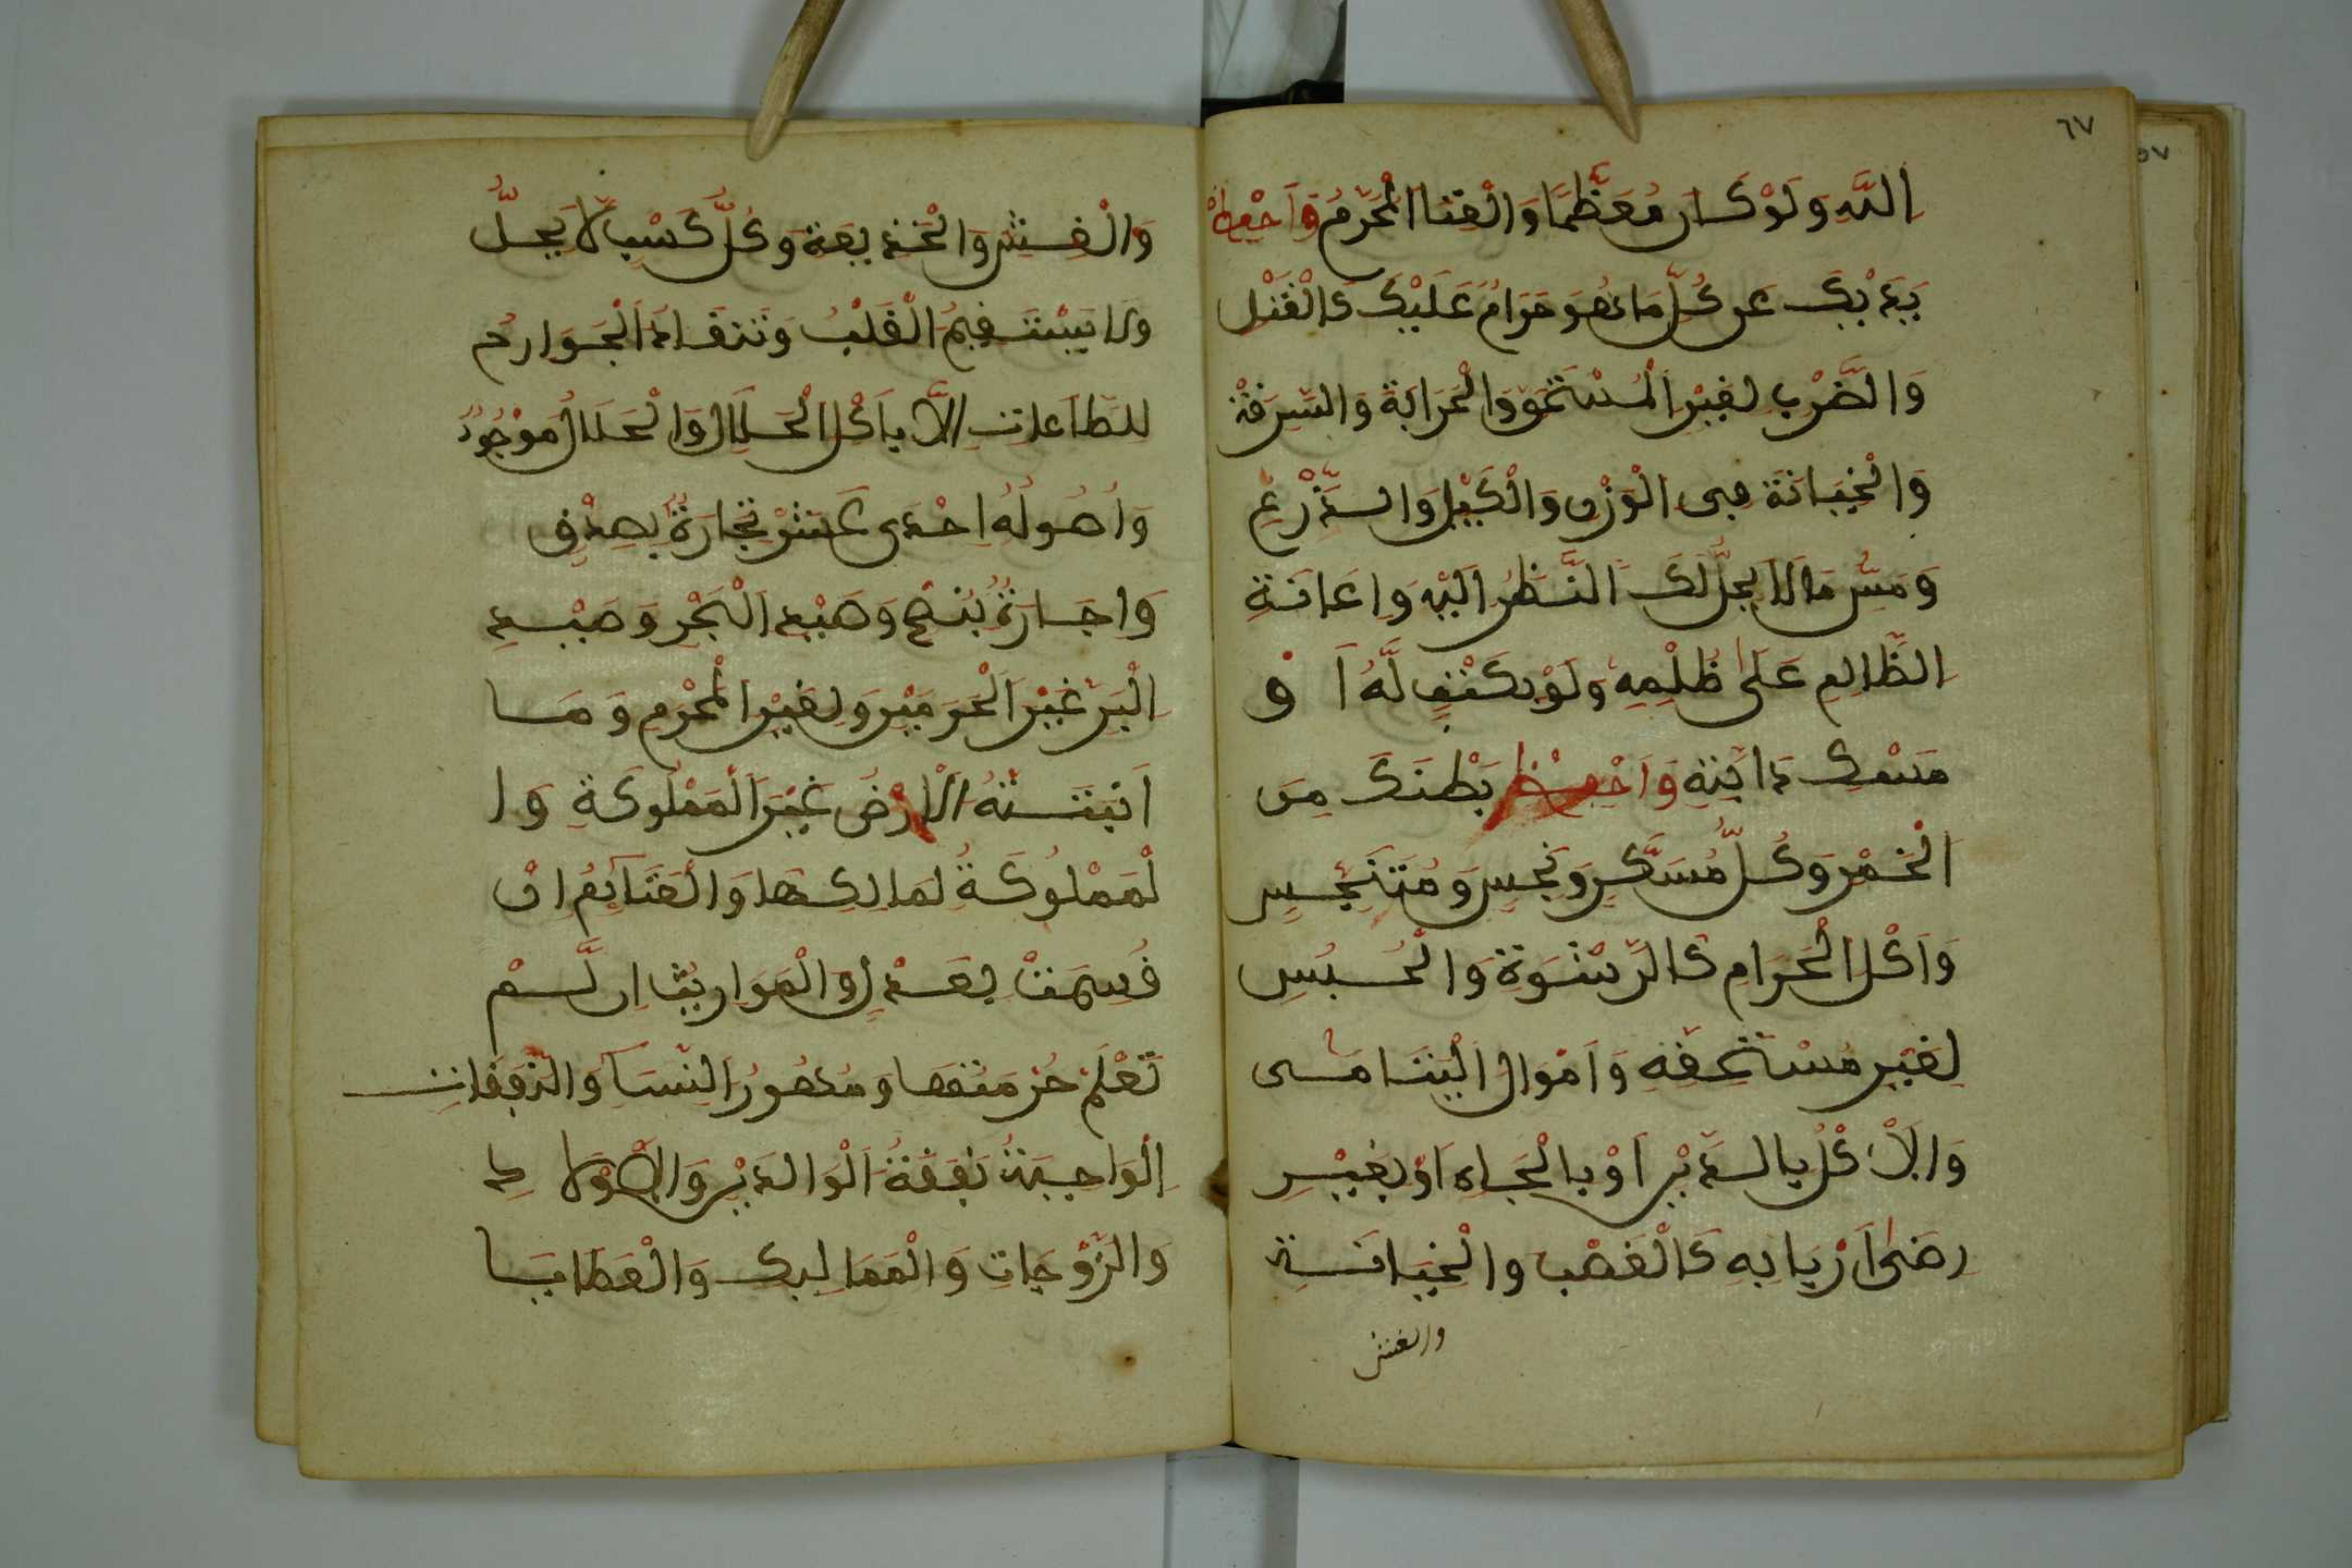 ٦٧
اللَّهِ وَلَوْ كَانَ مُعَظَّمًا وَالْغِنَا الْمُحَرَّمُ وَاحْفِظْ
يَدَيْكَ عَن كُلِّ مَا هُوَ حَرَامٌ عَلَيْكَ كَالْقَتْلِ
وَالضَّرْبِ لِغَيْرِ الْمُسْتَحِقِّ وَالْحَرَابَةِ وَالسَّرِقَةِ
وَالْخِيَانَةِ فِى الْوَزْنِ وَالْكَيْلِ وَالذَّرْعِ
وَمَسِّ مَالَا يَحِلُّ لَكَ النَّظَرُ الَيْهِ وَإِعَانَةِ
الظَّالِمِ عَلَى ظُلْمِهِ وَلَوْ بِكَتْبٍ لَهُ أَ وْ
مَسْكِ دَابَّتِهِ وَاحْفِظْ بَطْنَكَ مِنَ
الْخَمْرِ وَكُلِّ مُسَكِّرٍ وَنَجِسٍ وَمُتَنَجِّسٍ
وَأَكْلِ الْحَرَامِ كَالرِّشْوَةِ وَالْحُبُسِ
لِغَيْرِ مُسْتَحِقِّهِ وَأَمْوَالِ الْيَتَامَى
وَالَاكْلِ بِالدَّيْنِ أَوْ بِالْجَاهِ أَوْ بِغَيْرِ
رِضَى أَرْبَابِهِ كَالْغَصْبِ وَالْخِيَانَةِ
والغش
وَالْغِشِّ وَالْخَدِيعَةِ وَكُلِّ كَسْبٍ لَا يَحِلُّ
وَلَا يَسْتَفِيمُ الْقَلْبُ وَتَنْقَادُ الْجَوَارِحُ
لِلطَّاعَاتِ إِلَّا بِأَكْلِ الْحَلَالِ وَالْحَلَالُ مَوْجُودٌ
وَأُصُولُهُ إِحْدَى عَشَرْ تِجَارَةٌ بِصِدْقٍ
وَإِجَارَةٌ بِنُصْحٍ وَصَيْدُ الْبَحْرِ وَصَيْدِ
الْبَرِّ غَيْرَ الْحَرَمَيْنِ وَلِغَيْرِ الْمُحْرِمِ وَمَا
أَنْبَتَتْهُ الْأَرْضُ غَيْرَ الْمَمْلُوكَةِ وَا
لْمَمْلُوكَةُ لِمَالِكِهَا وَالْغَنَائِمُ إِنْ
قُسِمَتْ بِعَدْلٍ وَالْمَوَارِيثُ إِن لَّمْ
تَعْلَمْ حُرْمَتَهَا وَمُهُورُ النِّسَا وَالنَّفَقَاتِ
الْوَاجِبَةُ نَفَقَةُ الْوَالِدَيْنِ وَالْأَوْلَا دِ
وَالزَّوْجَاتِ وَالْمَمَالِيكِ وَالْعَطَايَا